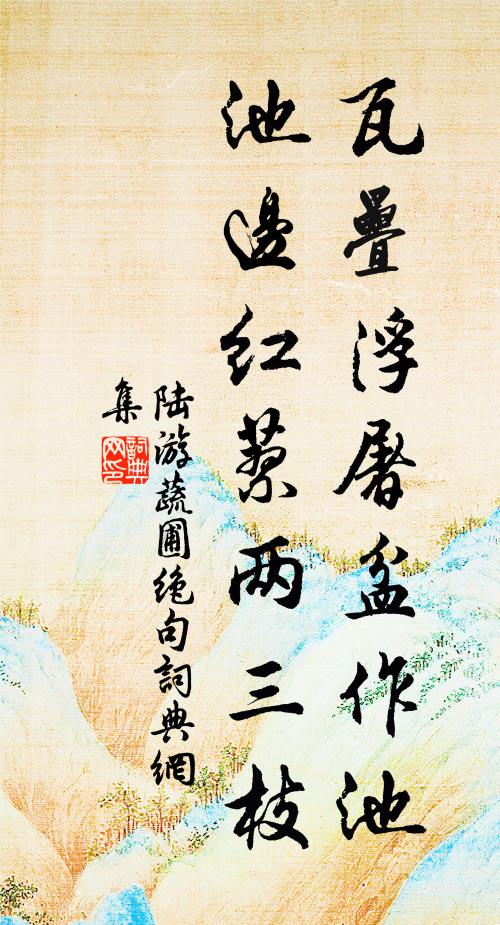 瓦疊浮屠盆作池
池邊红蓼两三枝
陆游蔬圃绝句詞典網
集
詞典
网印